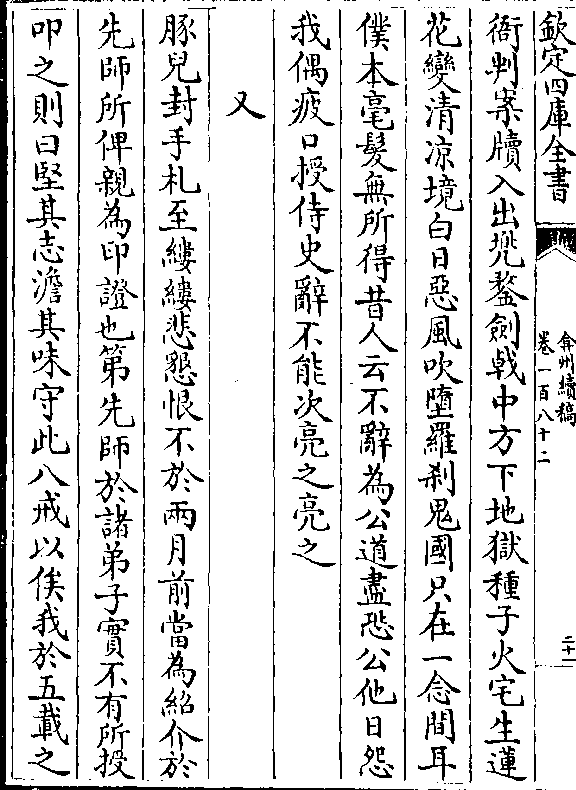 欽定四庫全書
弇州續稿
卷一百八十二
二十一
衙判案牘入出兠鍪劍㦸中方下地獄種子火宅生蓮
花變清凉境白日惡風吹墮羅刹鬼國只在一念間耳
僕本毫髮無所得昔人云不辭為公道盡恐公他日怨
我偶疲口授侍史辭不能次亮之亮之
又
豚兒封手札至縷縷悲懇恨不於兩月前當為紹介於
先師所俾親為印證也第先師於諸弟子實不有所授
叩之則曰堅其志澹其味守此八戒以俟我於五載之